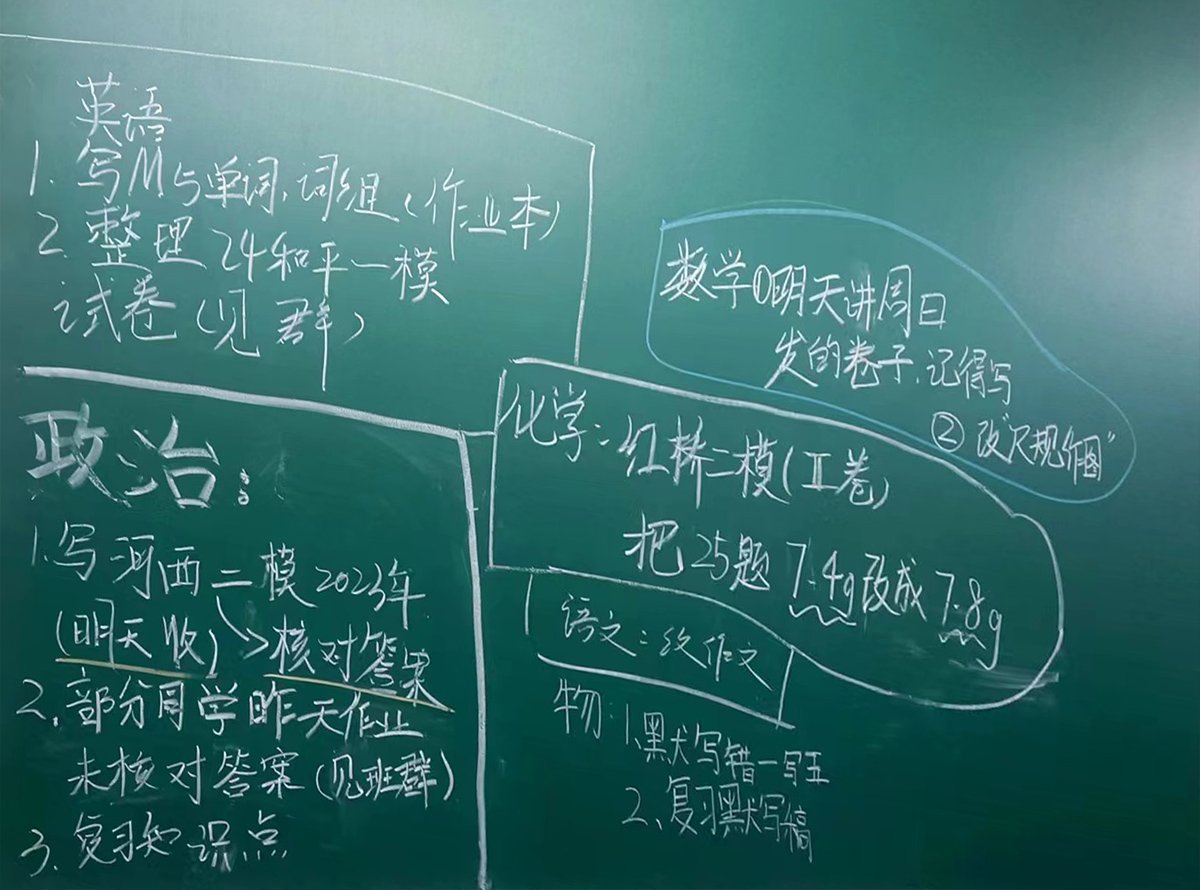 英语
1. 写M5单词、词组(作业本)
2. 整理24和平一模
试卷(见群)
数学①明天讲周日
发的卷子、记得写
②改"尺规作图"
政治:
1.写河西二模2023年
(明天收) 核对答案
2.部分同学昨天作业
未核对答案(见班群)
3.复习知识点
化学:红桥二模(Ⅱ卷)
把25题7.4g改成7.8g
语文:作文
物:1.默写错一写五
2.复习默写稿